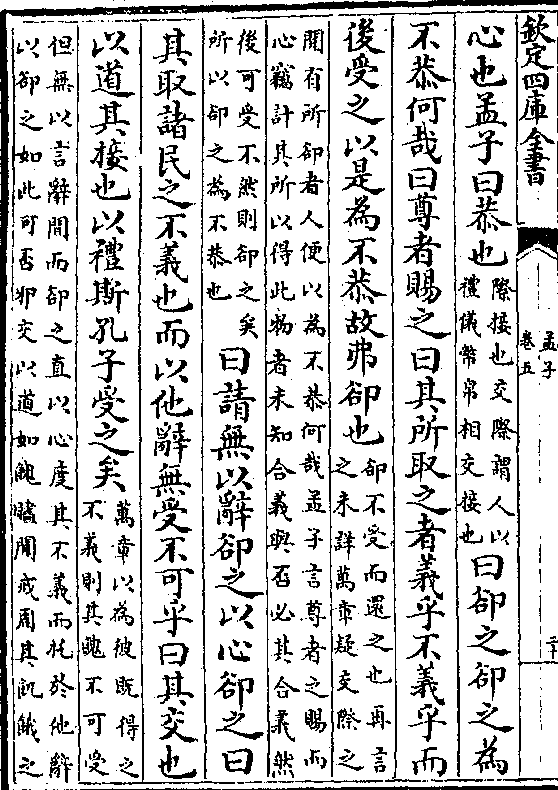 欽定四庫全書
孟子
卷五
二十
心也孟子曰恭也
際接也交際謂人以
禮儀幣帛相交接也
曰卻之卻之為
不恭何哉曰尊者賜之曰其所取之者義乎不義乎而
後受之以是為不恭故弗卻也
卻不受而還之也再言
之未詳萬章疑交際之
間有所卻者人便以為不恭何哉孟子言尊者之賜而
心竊計其所以得此物者未知合義與否必其合義然
後可受不然則卻之矣
所以卻之為不恭也
曰請無以辭卻之以心卻之曰
其取諸民之不義也而以他辭無受不可乎曰其交也
以道其接也以禮斯孔子受之矣
萬章以為彼既得之
不義則其餽不可受
但無以言辭間而卻之直以心度其不義而託於他辭
以卻之如此可否邪交以道如餽贐聞戒周其飢餓之